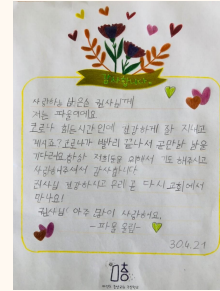 사랑하는 권사님께
저는 파울이에요.
코로나 힘든시간인데 건강하게 잘 지내고
계셔죠? 코로나가 빨리 끝나서 만날 날을
기다려요. 항상 저희들을 위해서 기도해주시고
사랑해주셔서 감사합니다.
권사님 건강하시고 우리 꼭 다시 교회에서
만나요!
권사님! 아주 많이 사랑해요.
-파울 올림-
30.4.21